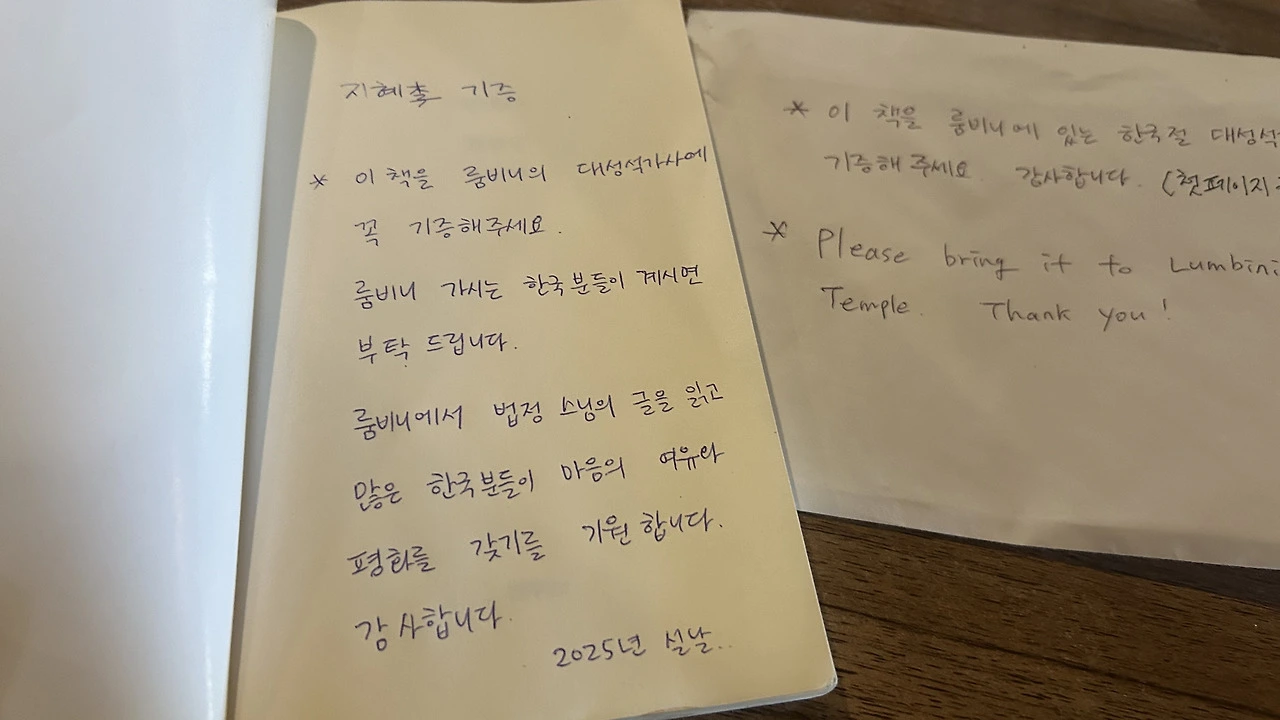 지혜 기증
* 이 책을 룸비니의 대성석가사에
꼭 기증해주세요.
룸비니 가시는 한국분들이 계시면
부탁 드립니다.
룸비니에서 법정 스님의 글을 읽고
많은 한국분들이 마음의 여유와
평화를 갖기를 기원합니다.
감사합니다.
2025년 설날..
* 이 책을 룸비니에 있는 한국절 대성석
기증해주세요. 감사합니다. (첫페이지
* Please bring it to Lumbini
Temple. Thank you!